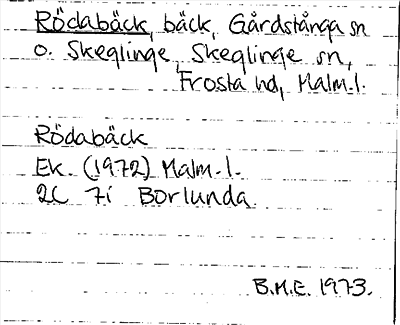 Rödabäck, bäck, Gårdstånga sn
o. Skeglinge, Skeglinge sn,
Frosta hd, Malm.l.
Rödabäck
Ek. (1972) Malm.l.
2C 7i Borlunda
B.M.E. 1973.